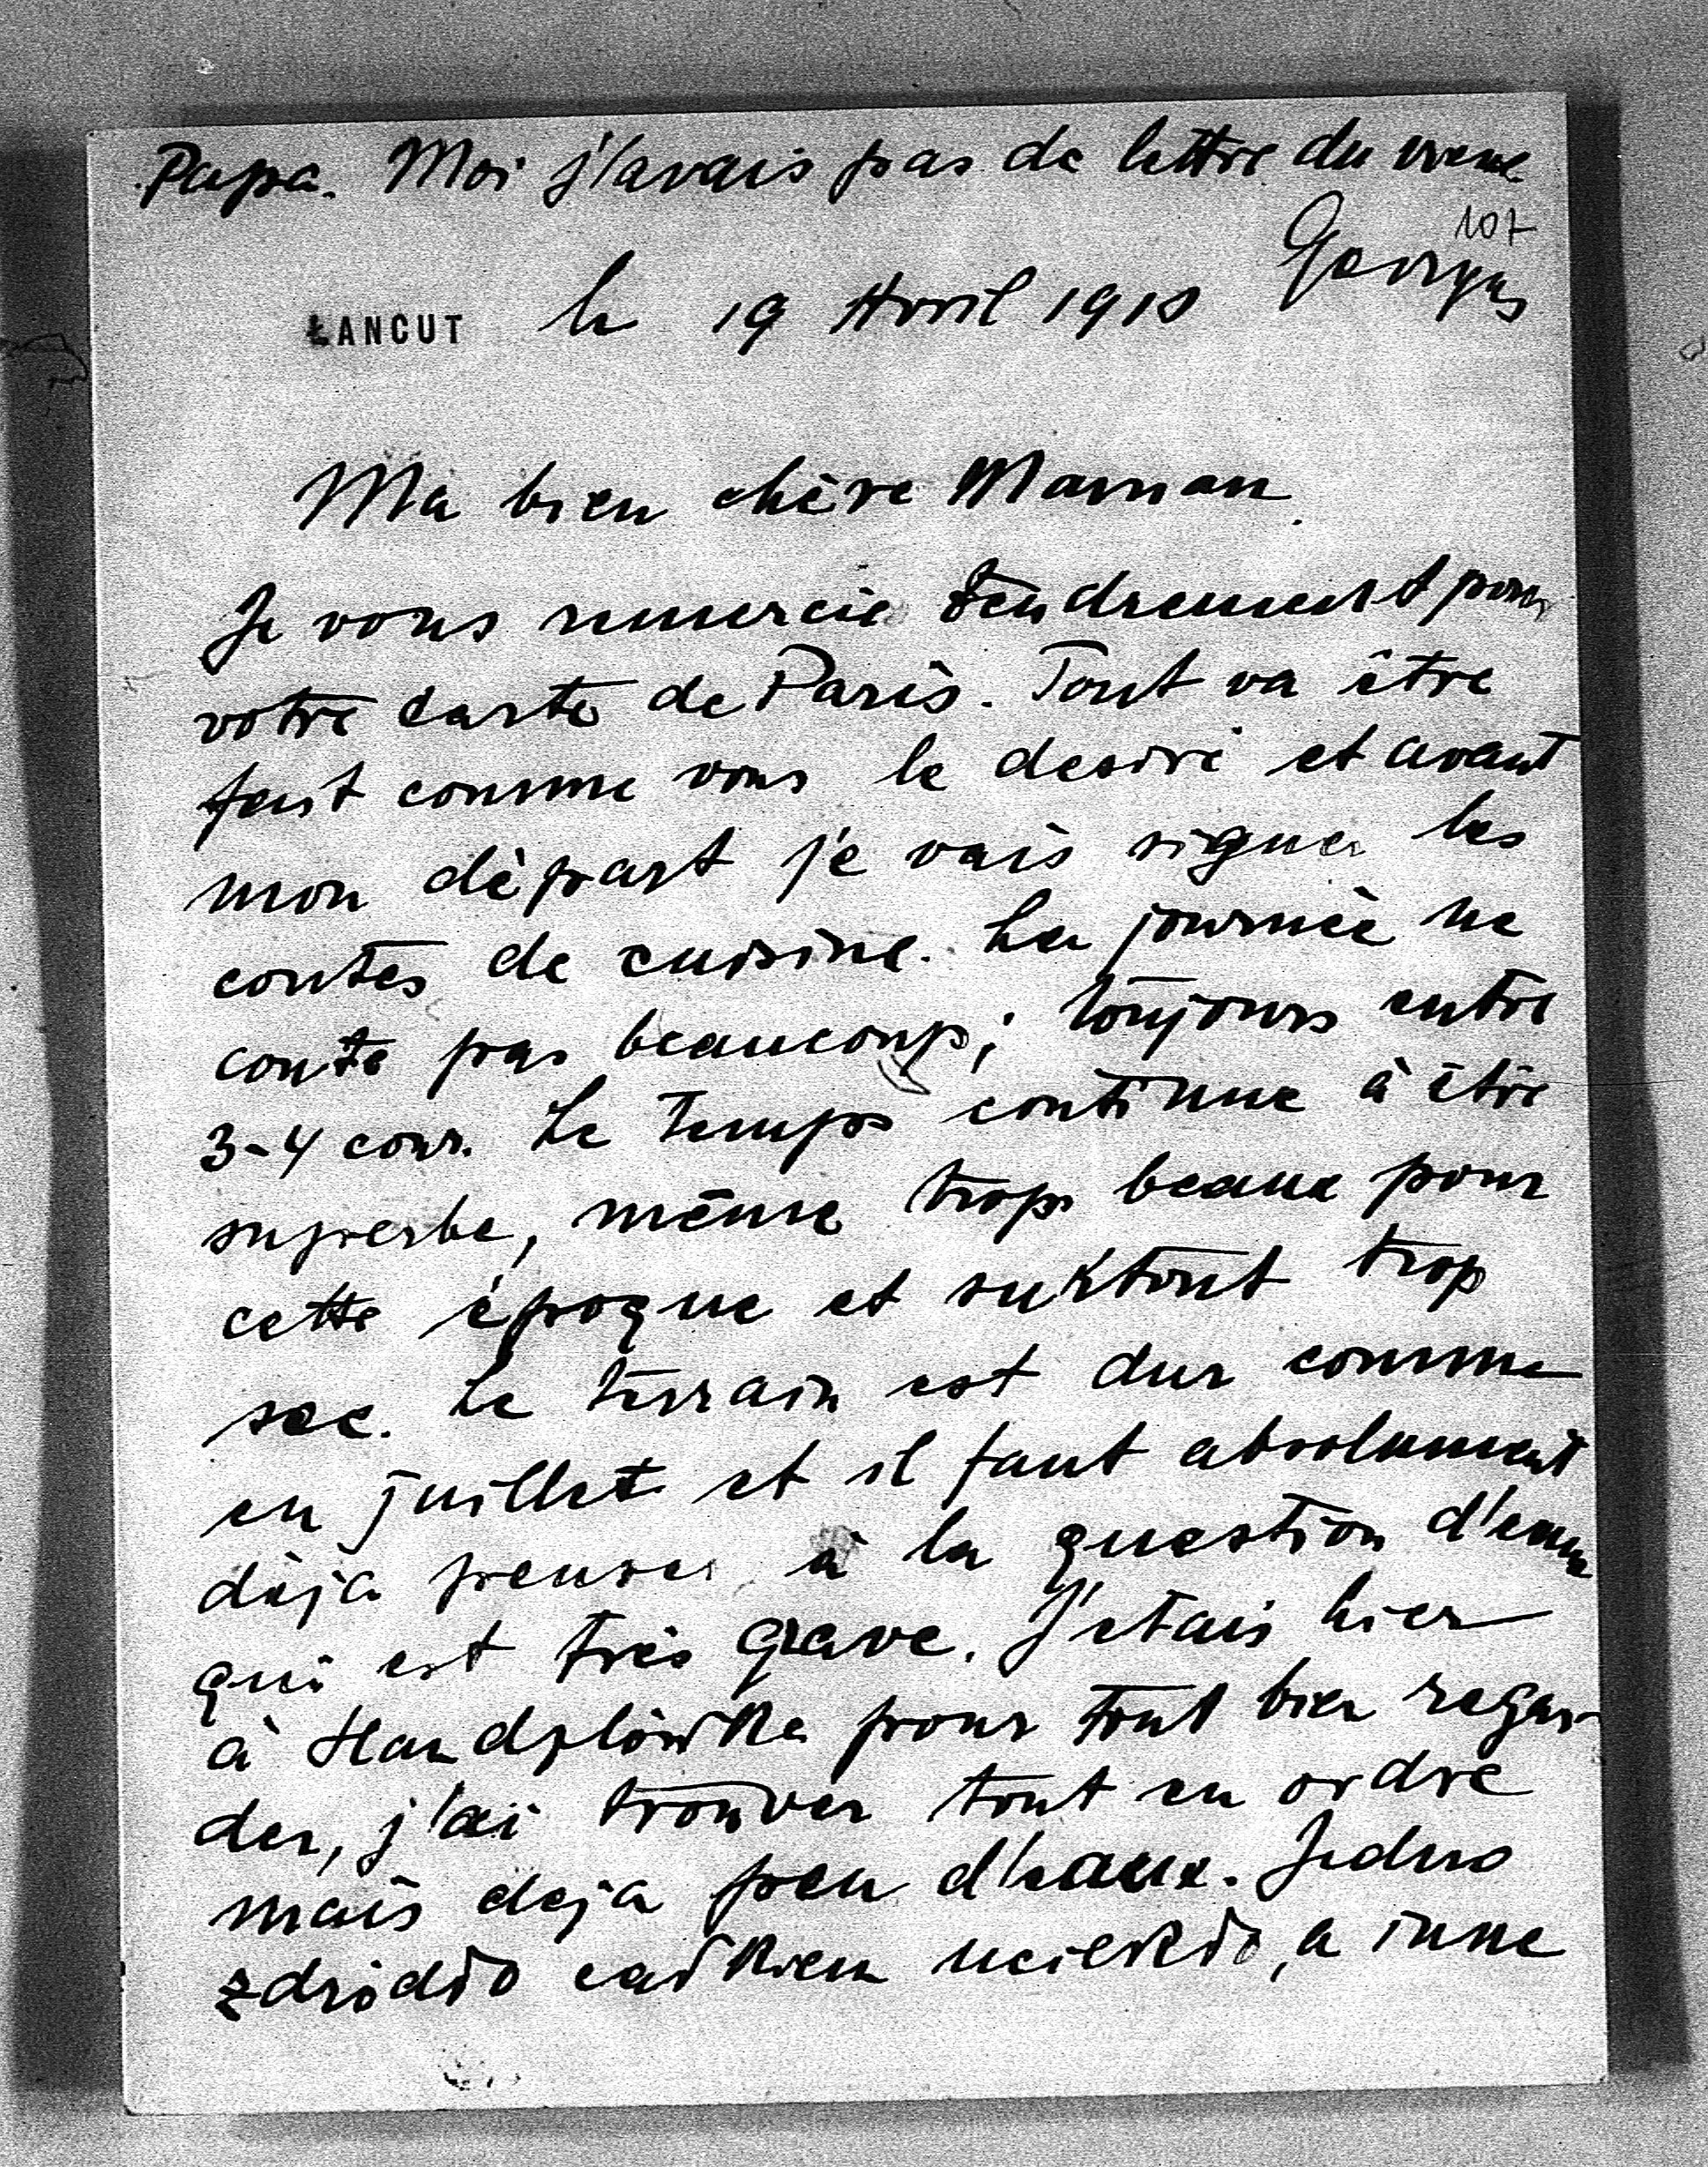 Papa. Moi j'avais pas de lettre du
107
Georges
ŁANCUT le 19 Avril 1910
Ma bien chère Maman.
Je vous remercie tendrement pour
votre carte de Paris. Tout va être
fait comme vous le desiré et avant
mon dèpart je vais signer les
contes de cuisine. La journèe ne
conte pas beaucoup; toujours entre
3-4 cour. Le temps continue à être
superbe, même trop beaux pour
cette époque et surtout trop
sec. Le terrain est dur comme
en juillet et il faut absolument
dèja penser à la question d'eaux
qui est très grave. J'etais hier
à Handzlówka pour tout bien regar-
der, j'ai trouver tout en ordre
mais deja peu d'eaux. Jedno
zdródło całkiem uciekło, a inne